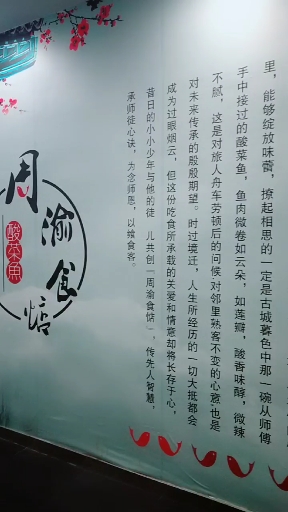 里，能够绽放味蕾，撩起相思的一定是古城暮色中那一碗从师傅
手中接过的酸菜鱼，鱼肉微卷如云朵，如莲瓣，酸香味醇，微辣
不腻，这是对旅人舟车劳顿后的问候，对邻里熟客不变的心意，也是
对未来传承的殷殷期望。时过境迁，人生所经历的一切大抵都会
成为过眼烟云，但这份吃食所承载的关爱和情意却将长存于心，
昔日的小小少年与他的徒儿共创「周渝食悟」，传先人智慧，
承师徒心诀，为念师恩，以飨食客。
周渝食悟
酸菜魚